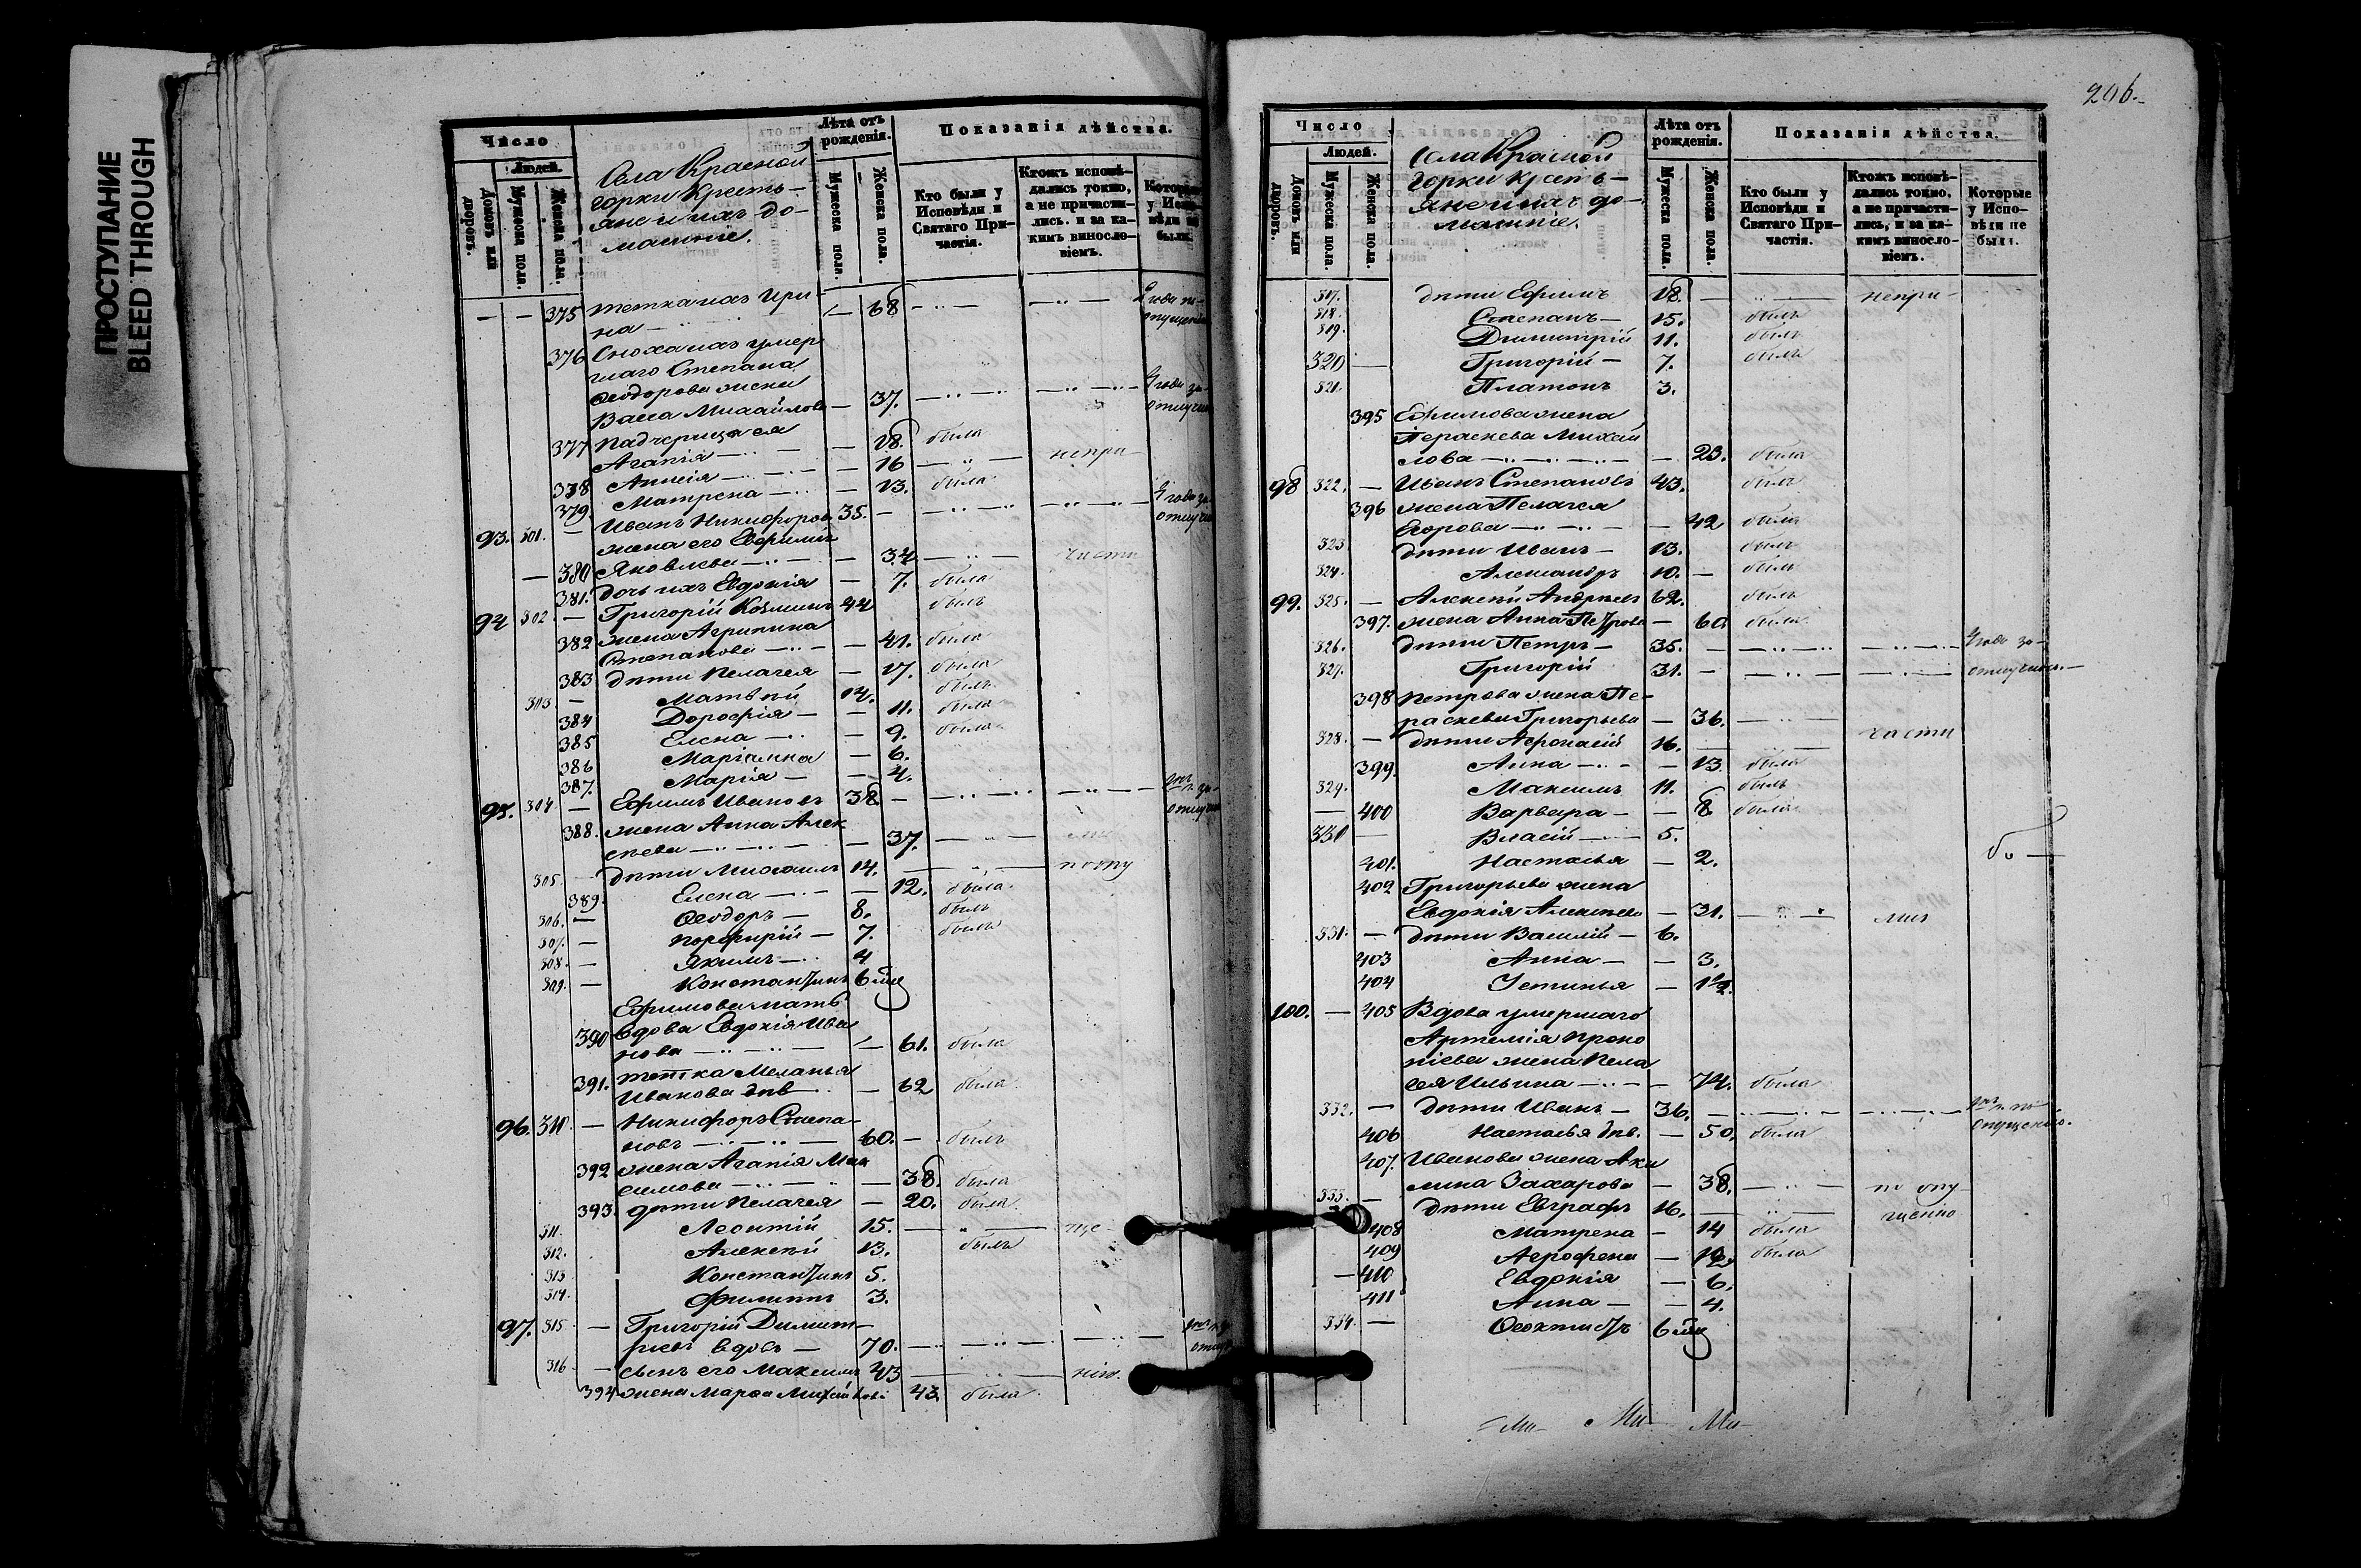 ПРОСТУПАНИЕ
BLEED THROUGH
Число
Людей.
Домовъ или дворовъ.
Мужеска пола.
Женска пола.
Села Красной
горки Кресть-
яне и ихъ до-
машніе.
Лѣта отъ рожденія.
Мужеска пола.
Женска пола.
Показанія дѣйства.
Кто были у Исповѣди и Святаго При-частія.
Ктожъ исповѣ-дались токмо, а не причасти-лись. и за ка-кимъ виносло-віемъ.
были.
— — 375 тетка ихъ Ири-
на — — 68
376 Сноха ихъ умер
шаго Степана
Ѳеодорова жена
Васса Михайлова — 37.
377 падчерица ея
Агапія — — 18. была
338 Аннсія — — 16 непри
379. Матрена — — 13. была
93. 301. — Иванъ Никифоровъ 35. —
жена его Евфимія
— 380 Яковлева — — 34 части
381. дочь ихъ Евдокія — 7. была
94 302 — Григорій Козминъ 44 былъ
382 жена Агрипина
Степанова — — 41. была
383 дѣти Пелагея — 17. была
303 — Матвѣй 14. былъ
384 Дорофія — — 11. была
385 Елена — — 9. была
386 Маріамна — 6.
387. Марія — — 4.
95. 304 — Ефимъ Ивановъ 38 —
388. жена Анна Алек
сѣева — — 37.
305. — дѣти Михаилъ 14. — по опу
389. Елена — — 12. была
306. — Ѳеодоръ — 8. былъ
307. — Порфирій — 7. былъ
308. — Якимъ — 4
309. — Константинъ 6 мц
Ефимова мать
390 вдова Евдокія Ива
нова — — 61. была
391. тетка Меланья
Иванова дѣв — — 62 была
96. 310 — Никифоръ Степа-
новъ — 60. — былъ
392 жена Агапія Мак
симова — — 38. была
393. дѣти Пелагея — 20. была
311. Леонтій 15. — ще
312. Алексѣй 13. былъ
313 Константинъ 5.
314. Филиппъ 3.
97. 315 — Григорій Димит-
ріевъ вдовъ — 70. —
316 — сынъ его Максимъ 43
394 жена Марѳа Михайлова 43 была
206.
Число
Людей.
Домовъ или дворовъ.
Мужеска пола.
Женска пола.
Села Красной
Горки кресть-
яне и ихъ до-
машніе.
Лѣта отъ рожденія.
Мужеска пола.
Женска пола.
Показанія дѣйства.
Кто были у Исповѣди и Святаго При-частія.
Ктожъ исповѣ-дались токмо, а не причасти-лись, и за ка-кимъ виносло-віемъ.
Которые у Испо-вѣди не были.
317. дѣти Ефимъ 18. — непри-
318. Степанъ — 15. былъ
319. Димитрій 11. былъ
320 — Григорій — 7. былъ
321. Платонъ 3.
395 Ефимова жена
Пераскева Михай
лова — — 23. была
98 322. — Иванъ Степановъ 43. былъ
396 жена Пелагея
Егорова — — 42 была
323 дѣти Иванъ — 13. былъ
324. Александръ 10. — былъ
99. 325. — Алексѣй Андреевъ 62. былъ
397. жена Анна Петрова — 60 была
326. дѣти Петръ — 35. — 4 года за-
327. Григорій 31. — отлучкою. —
398 Петрова жена Пе-
раскева Григорьева — 36.
328. — дѣти Аѳонасій 16. — части
399. Анна — — 13. была
329. Максимъ 11. былъ
— 400 Варвара — — 8 была
330 — Власій — 5.
401. Настасья — 2.
402 Григорьева жена
Евдокія Алексѣева — 31.
331. — дѣти Василій — 6.
403 Анна — — 3.
404 Устинья — 1½.
100. — 405 Вдова умершаго
Артемія Проко
піева жена Пела
гея Ильина — — 74. была
332. — дѣти Иванъ — 36. — опущенію.
406 Настасья дѣв. — 50. была
407. Иванова жена Аки
лина Захарова — 38. — по опу
333. — дѣти Евграфъ 16. — щенію
408 Матрена — 14 была
409 Агрофена — 12. была
— 410 Евдокія — 6.
411 Анна — — 4.
334. — Ѳеоктистъ 6 мц